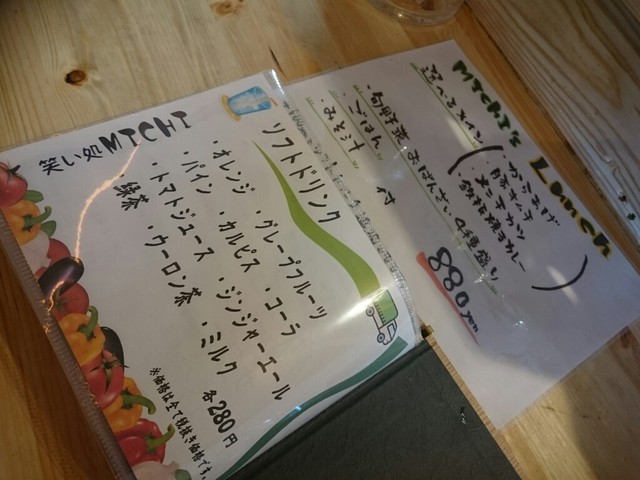 笑い処MICHI
ソフトドリンク
・オレンジ ・グレープフルーツ
・パイン ・カルピス ・コーラ
・トマトジュース ・ジンジャーエール
・緑茶 ・ウーロン茶 ・ミルク
各280円
※価格は全て税抜き価格です。
Michi's Lunch
選べるメイン
からあげ
チキン
カレー
おばんざい 4種盛り
旬野菜
ごはん
みそ汁
付
880yen